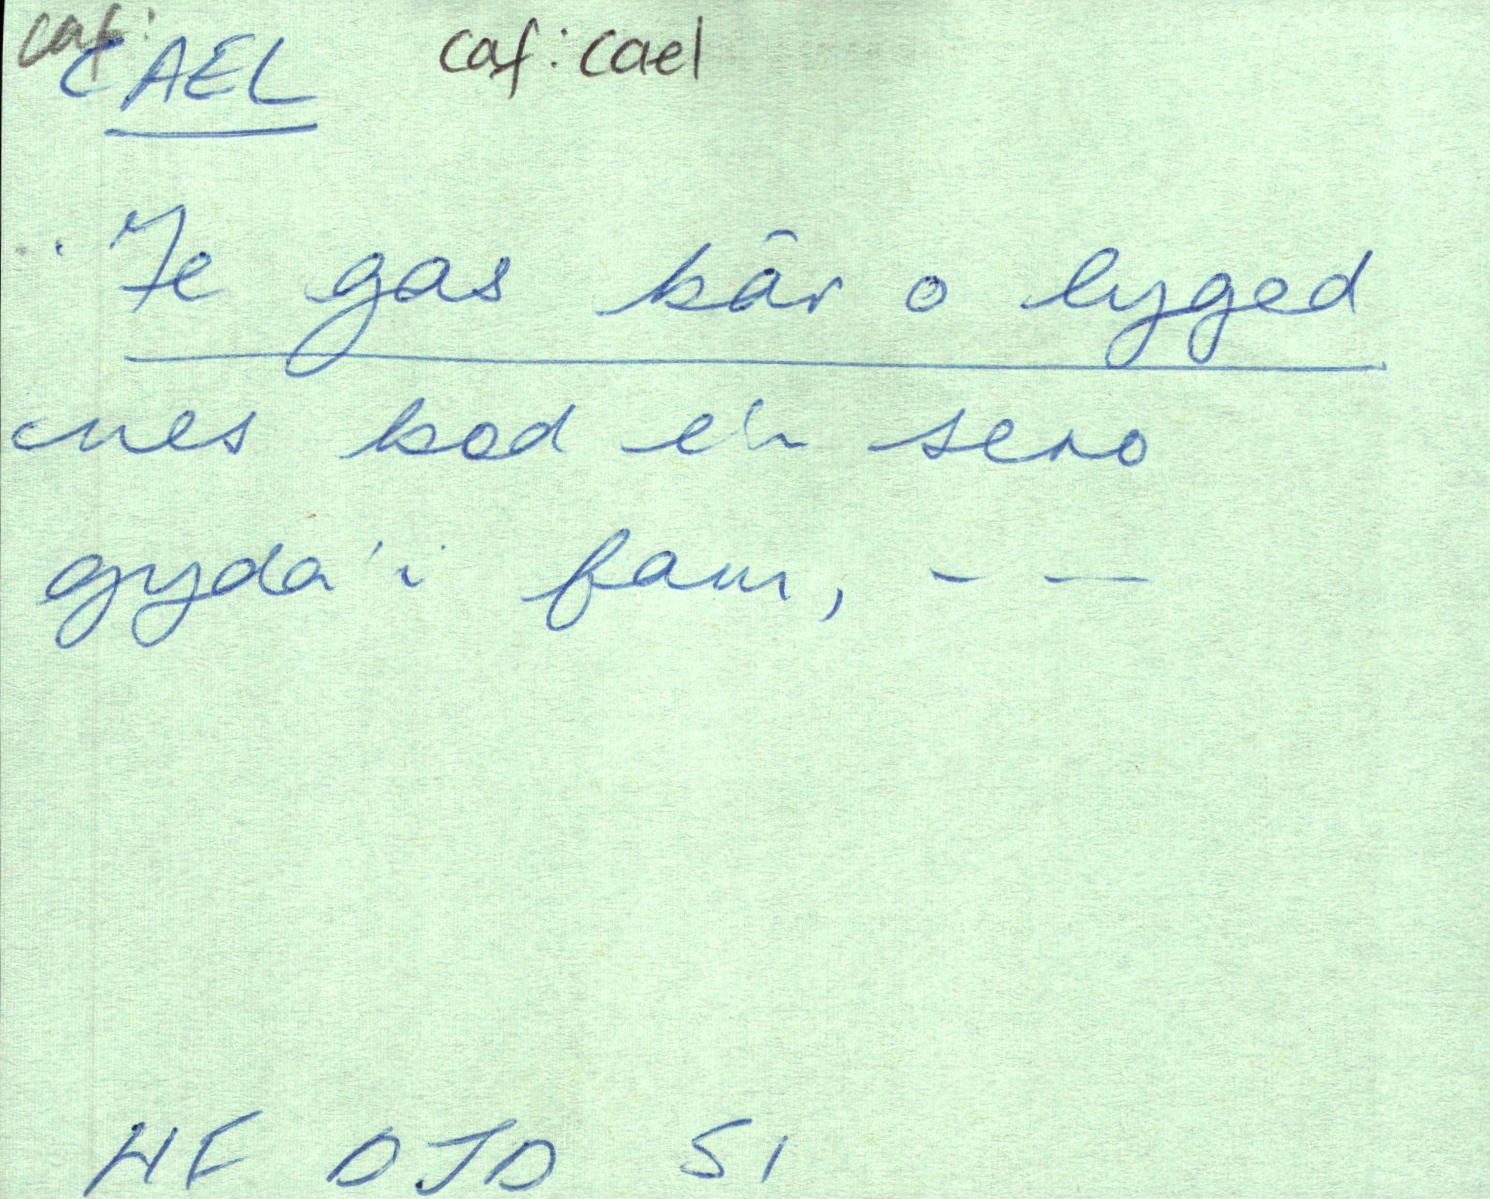 caf:
CAEL caf: cael
Fe gas bâr o lyged
mes bod e'n seno
gyda'i fam, - —
HF DJD 51